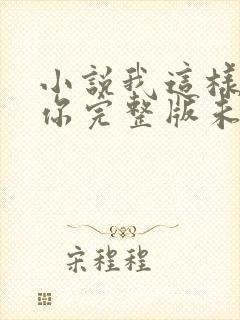 小說我這樣
你完整版未
宋程程